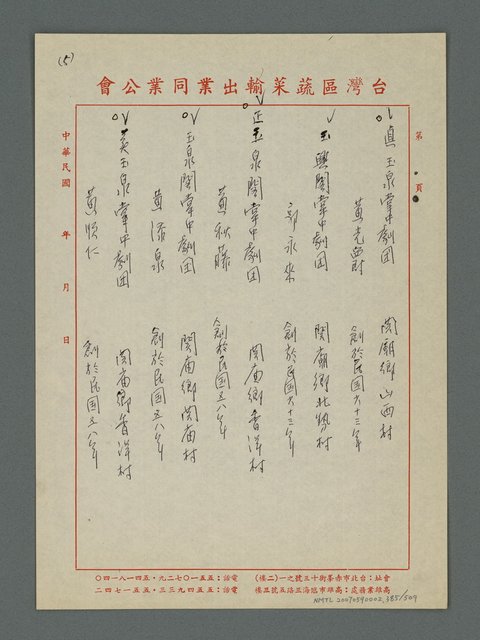 (5)
台灣區蔬菜輸出業同業公會
第　頁
真玉泉掌中劇团　関廟鄉山西村
黃光
創於民国六十三年
玉興閣掌中劇团　関廟鄉北勢村
郭永來
創於民国六十三年
正玉泉閣掌中劇团　関庙鄉香洋村
黃秋藤
創於民国五八年
玉泉閣掌中劇团　関庙鄉関庙村
黃添泉
創於民国五八年
美玉泉掌中劇團　関庙鄉香洋村
黃順仁
創於民国五八年
中華民國　年　月　日
會址：台北市赤峯街十三號之一(二樓)　電話：五五一〇七二九・五四一八一四〇
高雄業務處：高雄市旭海三路五號五樓　電話：五五四九三三・五五一七四二
NMTL 20070590002 385/509